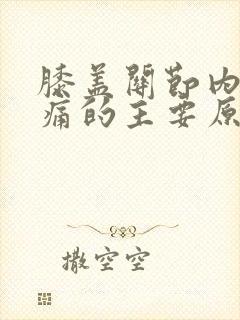 膝盖關節内
痛的主要原
撒空空